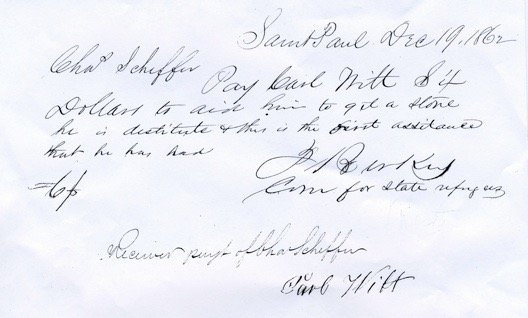 Saint Paul Dec 19, 1862
Chas Scheffer
Pay Carl Witt $ 4
Dollars to aid him to get a stove
he is destitute & this is the first assistance
that he has had
Com for state refugees
Receiver payt of Cha Scheffer
Carl Witt